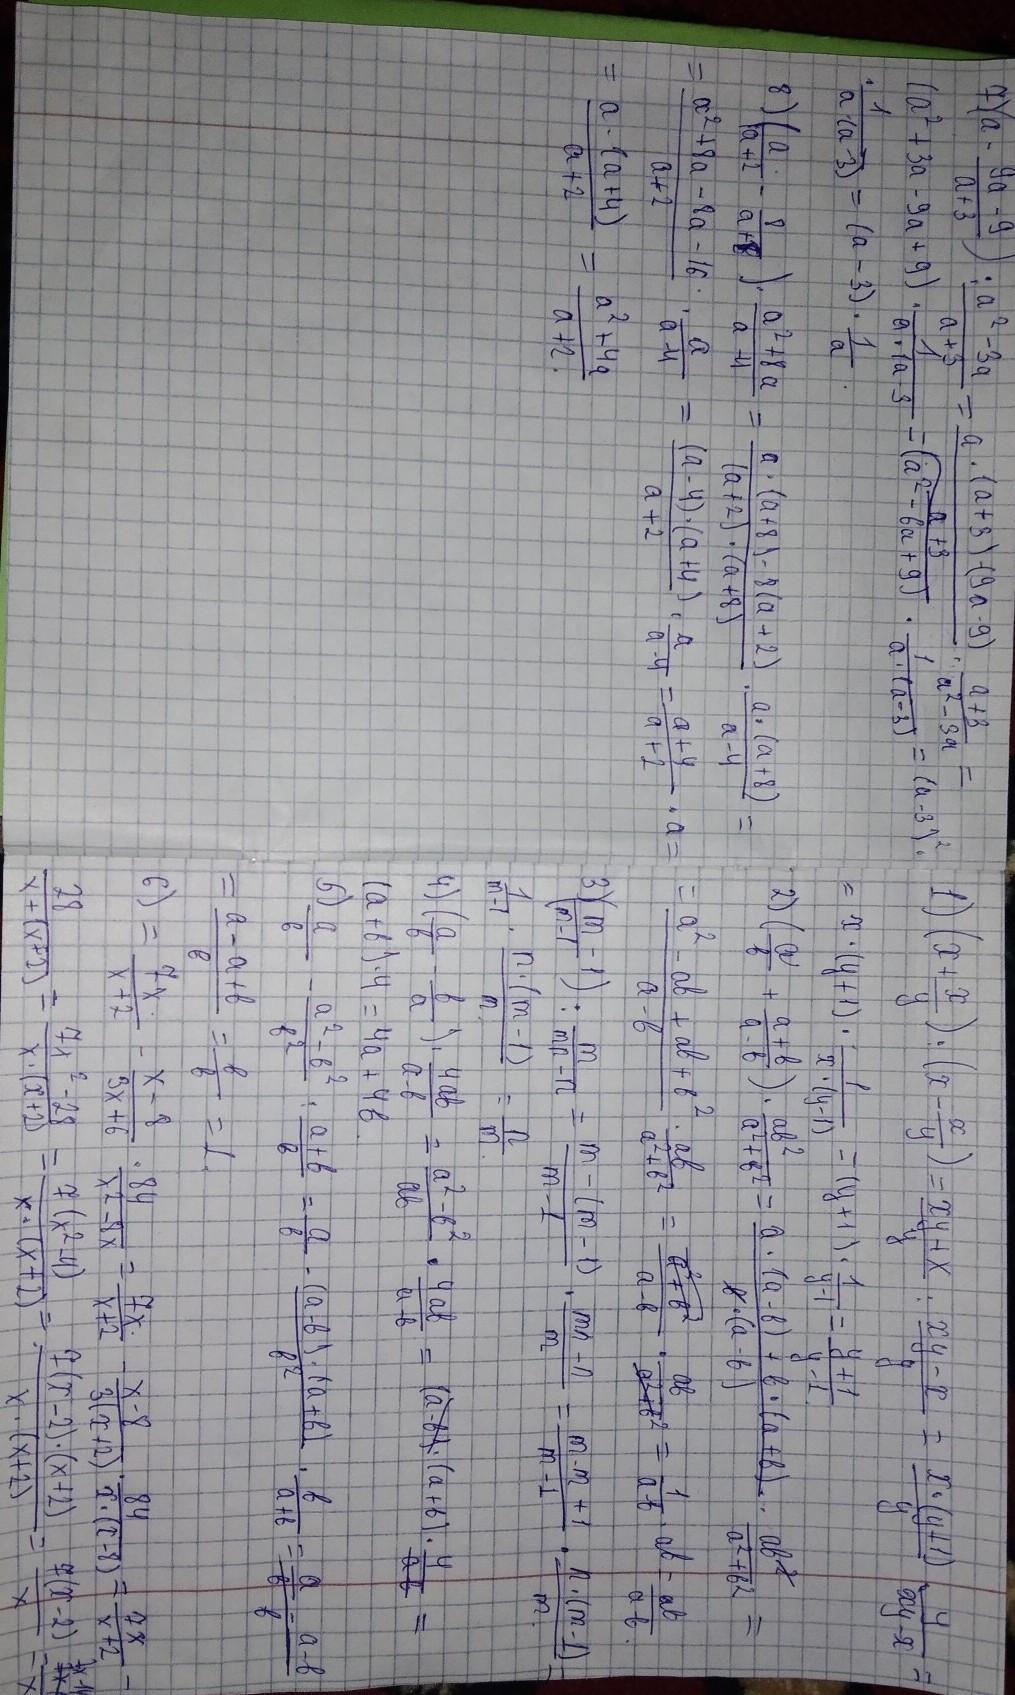 1) (x + x/y) : (x - x/y) = (xy+x)/y : (xy-x)/y = x·(y+1)/y · y/(xy-x) =
= x·(y+1) · 1/(x·(y-1)) = (y+1) · 1/(y-1) = (y+1)/(y-1)
2) (a/b + (a+b)/(a-b)) · ab²/(a²+b²) = (a·(a-b) + b·(a+b))/(b·(a-b)) · ab²/(a²+b²) =
= (a² - ab + ab + b²)/(a-b) · ab/(a²+b²) = (a²+b²)/(a-b) · ab/(a²+b²) = 1/(a-b) · ab = ab/(a-b).
3) (m/(m-1) - 1) : m/(mn-n) = (m-(m-1))/(m-1) · (mn-n)/m = (m-m+1)/(m-1) · n·(m-1)/m =
1/(m-1) · n·(m-1)/m = n/m.
4) (a/b - b/a) · 4ab/(a-b) = (a²-b²)/ab · 4ab/(a-b) = (a-b)·(a+b) · 4/(a-b) =
(a+b)·4 = 4a+4b
5) a/b - (a²-b²)/b² : (a+b)/b = a/b - (a-b)·(a+b)/b² · b/(a+b) = a/b - (a-b)/b
= (a-a+b)/b = b/b = 1.
6) = 7x/(x+2) - (x-8)/(3x+6) · 84/(x²-8x) = 7x/(x+2) - (x-8)/3(x+2) · 84/(x·(x-8)) = 7x/(x+2) -
28/(x+(x+2)) = (7x²-28)/(x·(x+2)) = 7(x²-4)/(x·(x+2)) = 7(x-2)·(x+2)/(x·(x+2)) = 7(x-2)/x =
7) (a - (9a-9)/(a+3)) : (a²-3a)/(a+3) = (a·(a+3)-(9a-9))/(a+3) · (a+3)/(a²-3a) =
(a²+3a-9a+9) · 1/(a·(a-3)) = (a²-6a+9) · 1/(a·(a-3)) = (a-3)² ·
· 1/(a·(a-3)) = (a-3) · 1/a.
8) (a/(a+2) - 8/(a+8)) · (a²+8a)/(a-4) = (a·(a+8)-8(a+2))/((a+2)·(a+8)) · a·(a+8)/(a-4) =
= (a²+8a-8a-16)/(a+2) · a/(a-4) = (a-4)·(a+4)/(a+2) · a/(a-4) = (a+4)/(a+2) · a =
= a·(a+4)/(a+2) = (a²+4a)/(a+2).